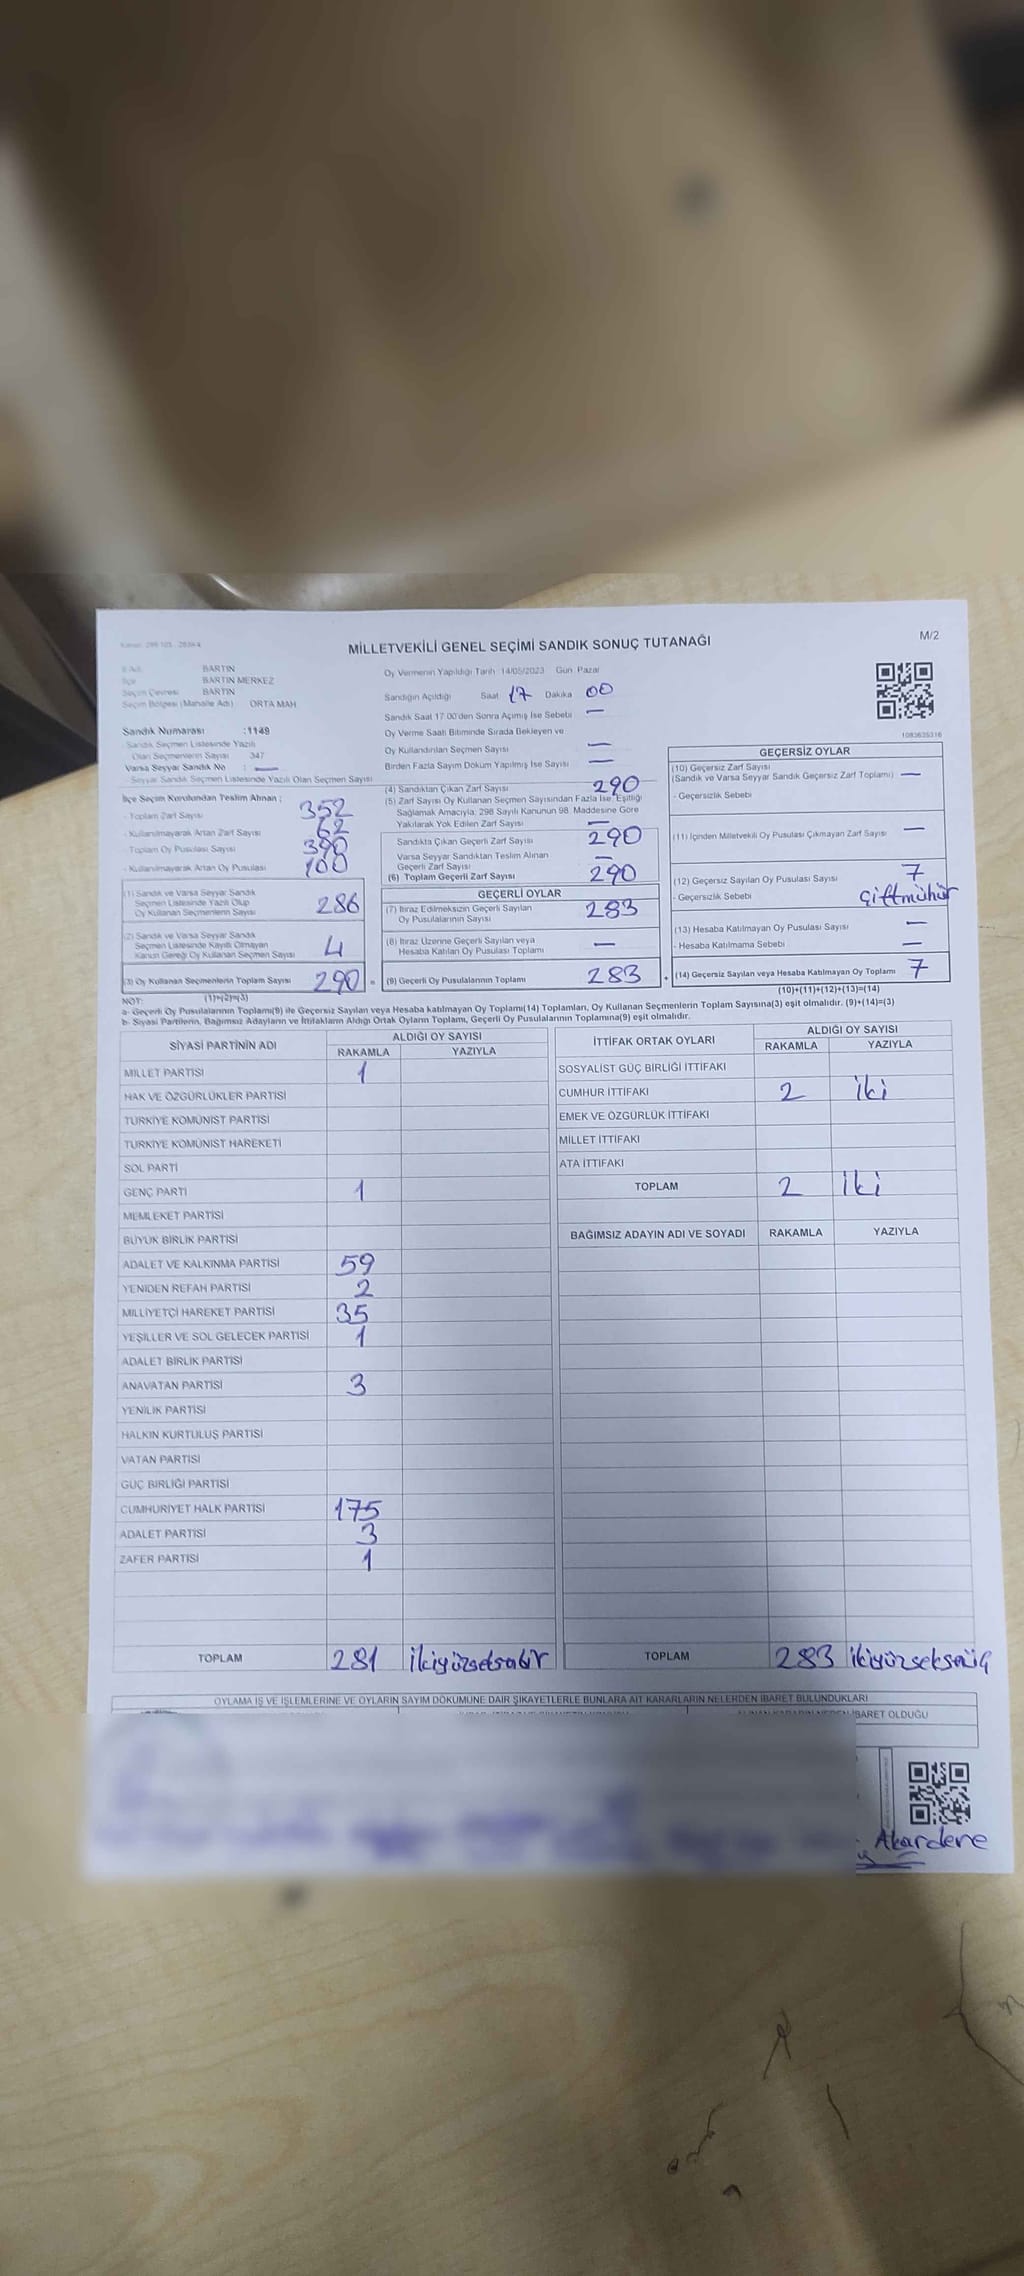 MİLLETVEKİLİ GENEL SEÇİMİ SANDIK SONUÇ TUTANAĞI
M/2
BARTIN
BARTIN MERKEZ
Seçim Çevresi BARTIN
Seçim Bölgesi (Mahalle Adı) ORTA MAH
Sandık Numarası :1149
Sandık Seçmen Listesinde Yazılı
Olan Seçmenlerin Sayısı 347
Varsa Seyyar Sandık No : —
Seyyar Sandık Seçmen Listesinde Yazılı Olan Seçmen Sayısı
Oy Vermenin Yapıldığı Tarih :14/05/2023 Gün: Pazar
Sandığın Açıldığı Saat 17 Dakika 00
Sandık Saat 17:00'den Sonra Açılmış İse Sebebi —
Oy Verme Saati Bitiminde Sırada Bekleyen ve
Oy Kullandırılan Seçmen Sayısı —
Birden Fazla Sayım Döküm Yapılmış İse Sayısı —
1083635316
İlçe Seçim Kurulundan Teslim Alınan ;
- Toplam Zarf Sayısı 352
- Kullanılmayarak Artan Zarf Sayısı 62
- Toplam Oy Pusulası Sayısı 390
- Kullanılmayarak Artan Oy Pusulası 100
(1) Sandık ve Varsa Seyyar Sandık
Seçmen Listesinde Yazılı Olup
Oy Kullanan Seçmenlerin Sayısı 286
(2) Sandık ve Varsa Seyyar Sandık
Seçmen Listesinde Kayıtlı Olmayan
Kanun Gereği Oy Kullanan Seçmen Sayısı 4
(3) Oy Kullanan Seçmenlerin Toplam Sayısı 290 =
(1)+(2)=(3)
(4) Sandıktan Çıkan Zarf Sayısı 290
(5) Zarf Sayısı Oy Kullanan Seçmen Sayısından Fazla İse, Eşitliği
Sağlamak Amacıyla; 298 Sayılı Kanunun 98. Maddesine Göre
Yakılarak Yok Edilen Zarf Sayısı —
Sandıkta Çıkan Geçerli Zarf Sayısı 290
Varsa Seyyar Sandıktan Teslim Alınan
Geçerli Zarf Sayısı —
(6) Toplam Geçerli Zarf Sayısı 290
GEÇERLİ OYLAR
(7) İtiraz Edilmeksizin Geçerli Sayılan
Oy Pusulalarının Sayısı 283
(8) İtiraz Üzerine Geçerli Sayılan veya
Hesaba Katılan Oy Pusulası Toplamı —
(9) Geçerli Oy Pusulalarının Toplamı 283 +
GEÇERSİZ OYLAR
(10) Geçersiz Zarf Sayısı
(Sandık ve Varsa Seyyar Sandık Geçersiz Zarf Toplamı) —
- Geçersizlik Sebebi
(11) İçinden Milletvekili Oy Pusulası Çıkmayan Zarf Sayısı —
(12) Geçersiz Sayılan Oy Pusulası Sayısı 7
- Geçersizlik Sebebi çiftmühür
(13) Hesaba Katılmayan Oy Pusulası Sayısı —
- Hesaba Katılmama Sebebi —
(14) Geçersiz Sayılan veya Hesaba Katılmayan Oy Toplamı 7
(10)+(11)+(12)+(13)=(14)
NOT:
a- Geçerli Oy Pusulalarının Toplamı(9) ile Geçersiz Sayılan veya Hesaba katılmayan Oy Toplamı(14) Toplamları, Oy Kullanan Seçmenlerin Toplam Sayısına(3) eşit olmalıdır. (9)+(14)=(3)
b- Siyasi Partilerin, Bağımsız Adayların ve İttifakların Aldığı Ortak Oyların Toplamı, Geçerli Oy Pusulalarının Toplamına(9) eşit olmalıdır.
SİYASİ PARTİNİN ADI ALDIĞI OY SAYISI
RAKAMLA YAZIYLA
MİLLET PARTİSİ 1
HAK VE ÖZGÜRLÜKLER PARTİSİ
TÜRKİYE KOMÜNİST PARTİSİ
TÜRKİYE KOMÜNİST HAREKETİ
SOL PARTİ
GENÇ PARTİ 1
MEMLEKET PARTİSİ
BÜYÜK BİRLİK PARTİSİ
ADALET VE KALKINMA PARTİSİ 59
YENİDEN REFAH PARTİSİ 2
MİLLİYETÇİ HAREKET PARTİSİ 35
YEŞİLLER VE SOL GELECEK PARTİSİ 1
ADALET BİRLİK PARTİSİ
ANAVATAN PARTİSİ 3
YENİLİK PARTİSİ
HALKIN KURTULUŞ PARTİSİ
VATAN PARTİSİ
GÜÇ BİRLİĞİ PARTİSİ
CUMHURİYET HALK PARTİSİ 175
ADALET PARTİSİ 3
ZAFER PARTİSİ 1
TOPLAM 281 ikiyüzseksabir
İTTİFAK ORTAK OYLARI ALDIĞI OY SAYISI
RAKAMLA YAZIYLA
SOSYALİST GÜÇ BİRLİĞİ İTTİFAKI
CUMHUR İTTİFAKI 2 iki
EMEK VE ÖZGÜRLÜK İTTİFAKI
MİLLET İTTİFAKI
ATA İTTİFAKI
TOPLAM 2 iki
BAĞIMSIZ ADAYIN ADI VE SOYADI RAKAMLA YAZIYLA
TOPLAM 283 ikiyüzseksenüç
OYLAMA İŞ VE İŞLEMLERİNE VE OYLARIN SAYIM DÖKÜMÜNE DAİR ŞİKAYETLERLE BUNLARA AİT KARARLARIN NELERDEN İBARET BULUNDUKLARI
İBARET OLDUĞU
Akardere